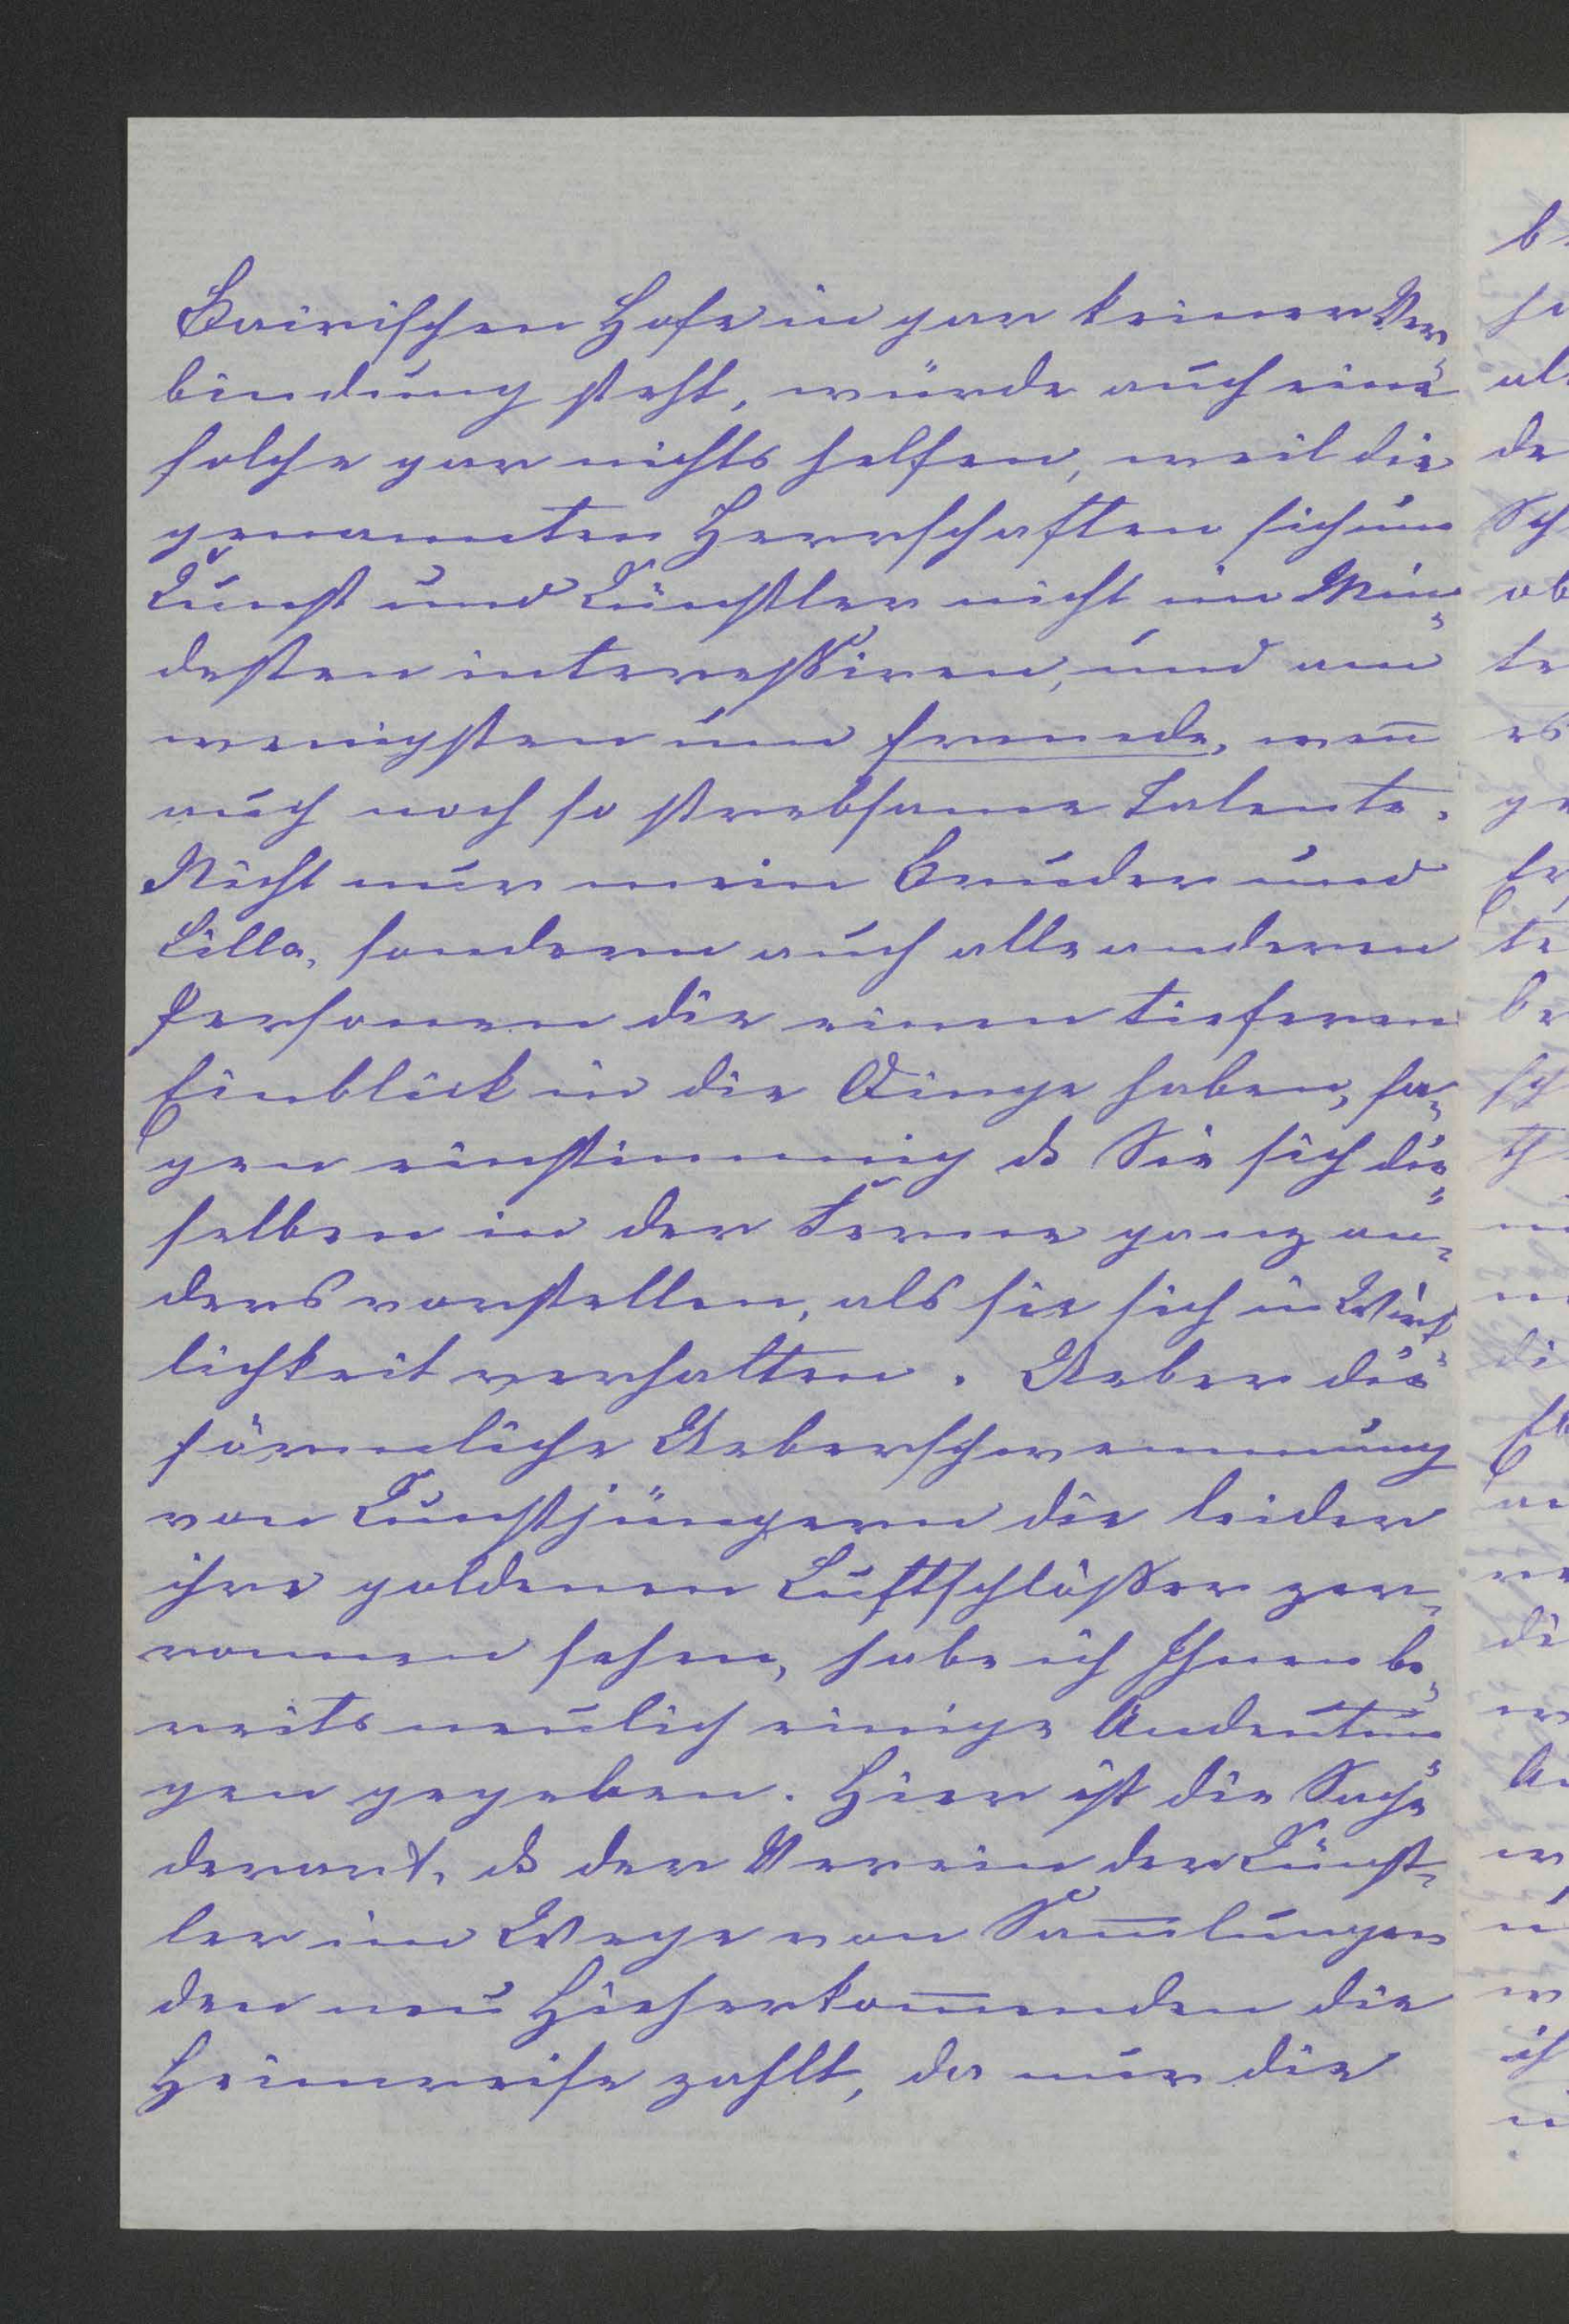 Bairischen Hofe in gar keiner Ver-
bindung steht, würde auch eine
solche gar nichts helfen, weil die
genannten Herrschaften sich um
Kunst und Künstler nicht im Min-
desten interessiren, und am
wenigsten um fremde, weñ
auch noch so strebsame Talente.
Nicht nur mein Bruder und
Lilla, sondern auch alle anderen
Personen die einen tieferen
Einblick in die Dinge haben, sa-
gen einstimmig ds Sie sich die-
selben in der Ferne ganz an-
ders vorstellen, als sie sich in Wirk-
lichkeit verhalten. Ueber die
förmliche Ueberschwemmung
von Kunstjüngern die leider
ihre goldenen Luftschlösser zer-
ronnen sehen, habe ich Ihnen be-
reits neulich einige Andeutun-
gen gegeben. Hier ist die Sache
derart, ds der Verein der Künst-
ler im Wege von Sam̅lungen
den neu Hieherkom̅enden die
Heimreise zahlt, da nur die